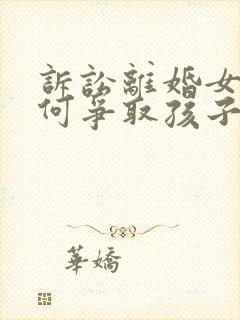 訴訟離婚女
何爭取孩子
華嬌